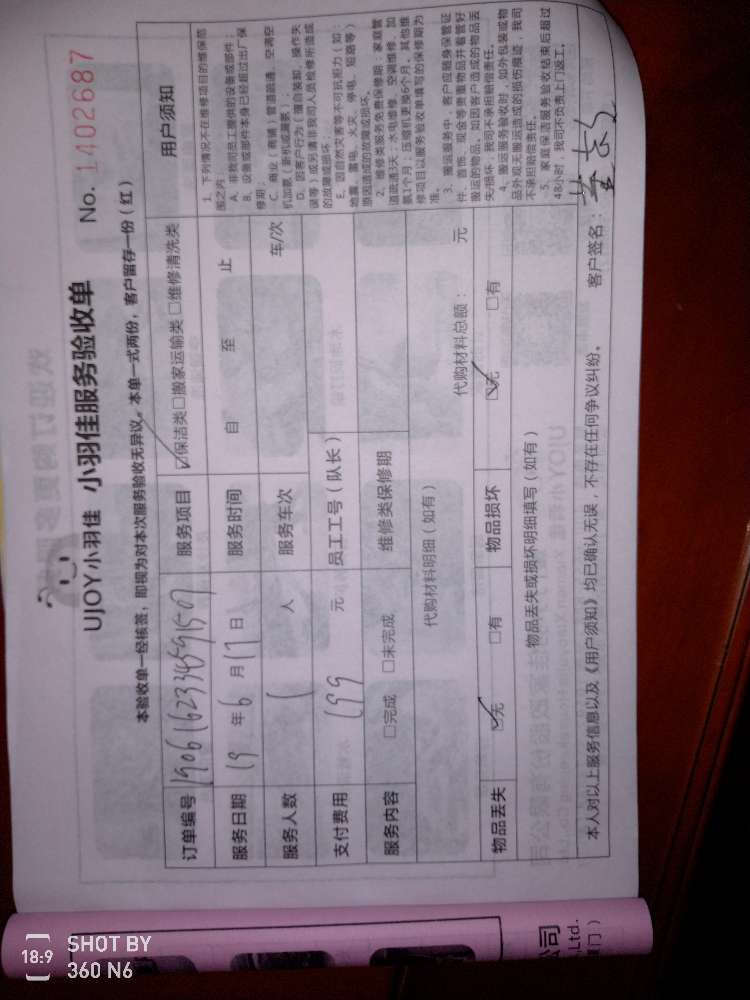 UJOY小羽佳 小羽佳服务验收单 No. 1402687
本验收单一经核签，即视为对本次服务验收无异议。本单一式两份，客户留存一份（红）
订单编号 服务项目 ☑保洁类□搬家运输类 □维修清洗类 用户须知
服务日期 19 年 6 月 17 日 服务时间 自 至 止
服务人数 1 人 服务车次 车/次
支付费用 199 元 员工工号（队长）
服务内容 □完成 □未完成 维修类保修期
代购材料明细（如有） 代购材料总额： 元
物品丢失 ☑无 □有 物品损坏 ☑无 □有
物品丢失或损坏明细填写（如有）
1. 下列情况不在维修项目的维保范
围之内
A. 非我司员工提供的设备或部件；
B. 设备或部件本身已经超过出厂保
修期；
C. 商业（商铺）管道疏通、空调空
机加氨（新机或漏氨）；
D. 因客户行为（擅自装卸、操作失
误等）或另请非我司人员检修所造成
的故障或损坏；
E. 因自然灾害等不可抗拒力（如：
地震、雷电、火灾、停电、短路等）
原因造成的故障或损坏。
2. 维修类服务免费保修期：家庭管
道疏通5天；水电维修、空调维修、加
氨1个月；压缩机更换6个月。其他维
修项目以服务验收单填写的保修期为
准。
3. 搬运服务中，客户应随身保管证
件、首饰、现金等贵重物品并看管好
搬运的物品。如因客户造成的物品丢
失/损坏，我司不承担赔偿责任。
4. 搬运服务验收时，如外包装或物
品外观无搬运造成的损伤痕迹，我司
不承担赔偿责任。
5. 家庭保洁服务验收结束后超过
48小时，我司不负责上门返工。
本人对以上服务信息以及《用户须知》均已确认无误，不存在任何争议纠纷。 客户签名：
公司
,Ltd.
18:9 SHOT BY
360 N6